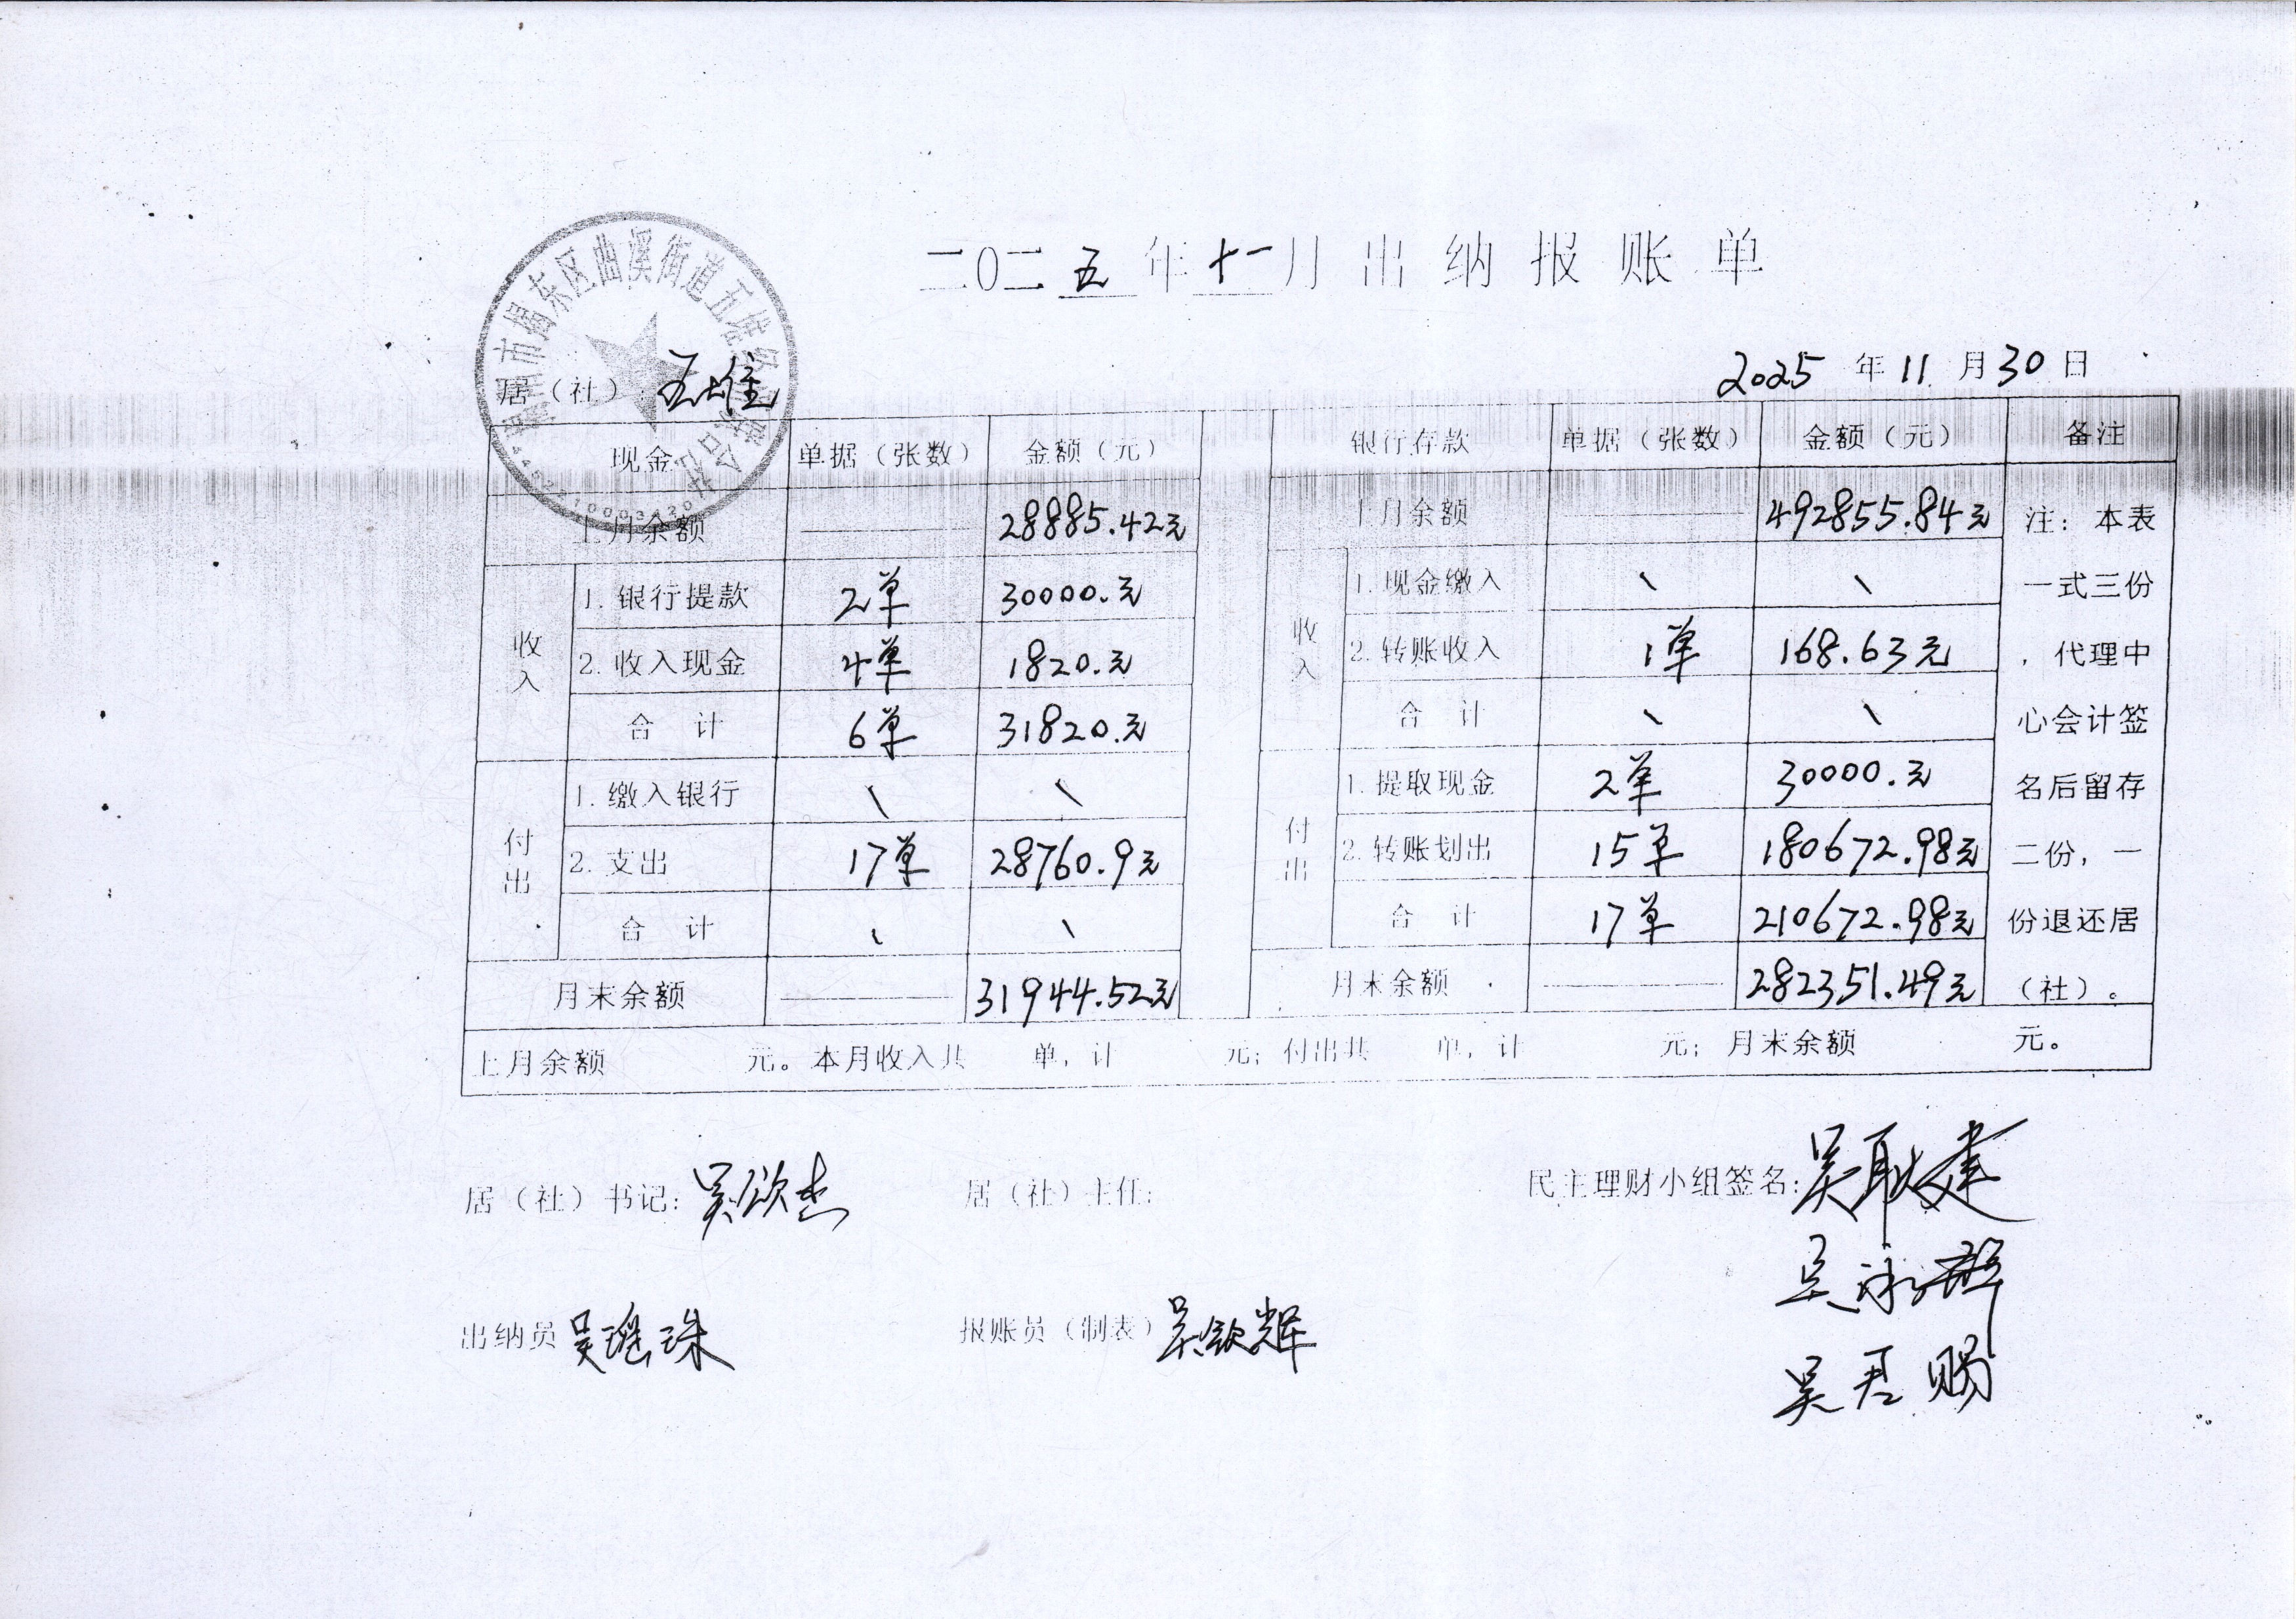 二0二五年十一月出纳报账单
揭东区曲溪街道五堆经
居（社）：五堆
2025 年 11 月 30 日
现金 单据（张数） 金额（元） 银行存款 单据（张数） 金额（元） 备注
上月余额 28885.42元 上月余额 492855.84元 注：本表
收入 1.银行提款 2单 30000.元 收入 1.现金缴入 \ \ 一式三份
2.收入现金 4单 1820.元 2.转账收入 1单 168.63元 ，代理中
合 计 6单 31820.元 合 计 \ \ 心会计签
付出 1.缴入银行 \ \ 付出 1.提取现金 2单 30000.元 名后留存
2.支出 17单 28760.9元 2.转账划出 15单 180672.98元 二份，一
合 计 \ \ 合 计 17单 210672.98元 份退还居
月末余额 31944.52元 月末余额 282351.49元 （社）。
上月余额 元。本月收入共 单，计 元；付出共 单，计 元；月末余额 元。
居（社）书记：吴欣杰 居（社）主任： 民主理财小组签名：吴耿建
吴永群
出纳员 吴瑶珠 报账员（制表） 吴钦辉
吴君赐